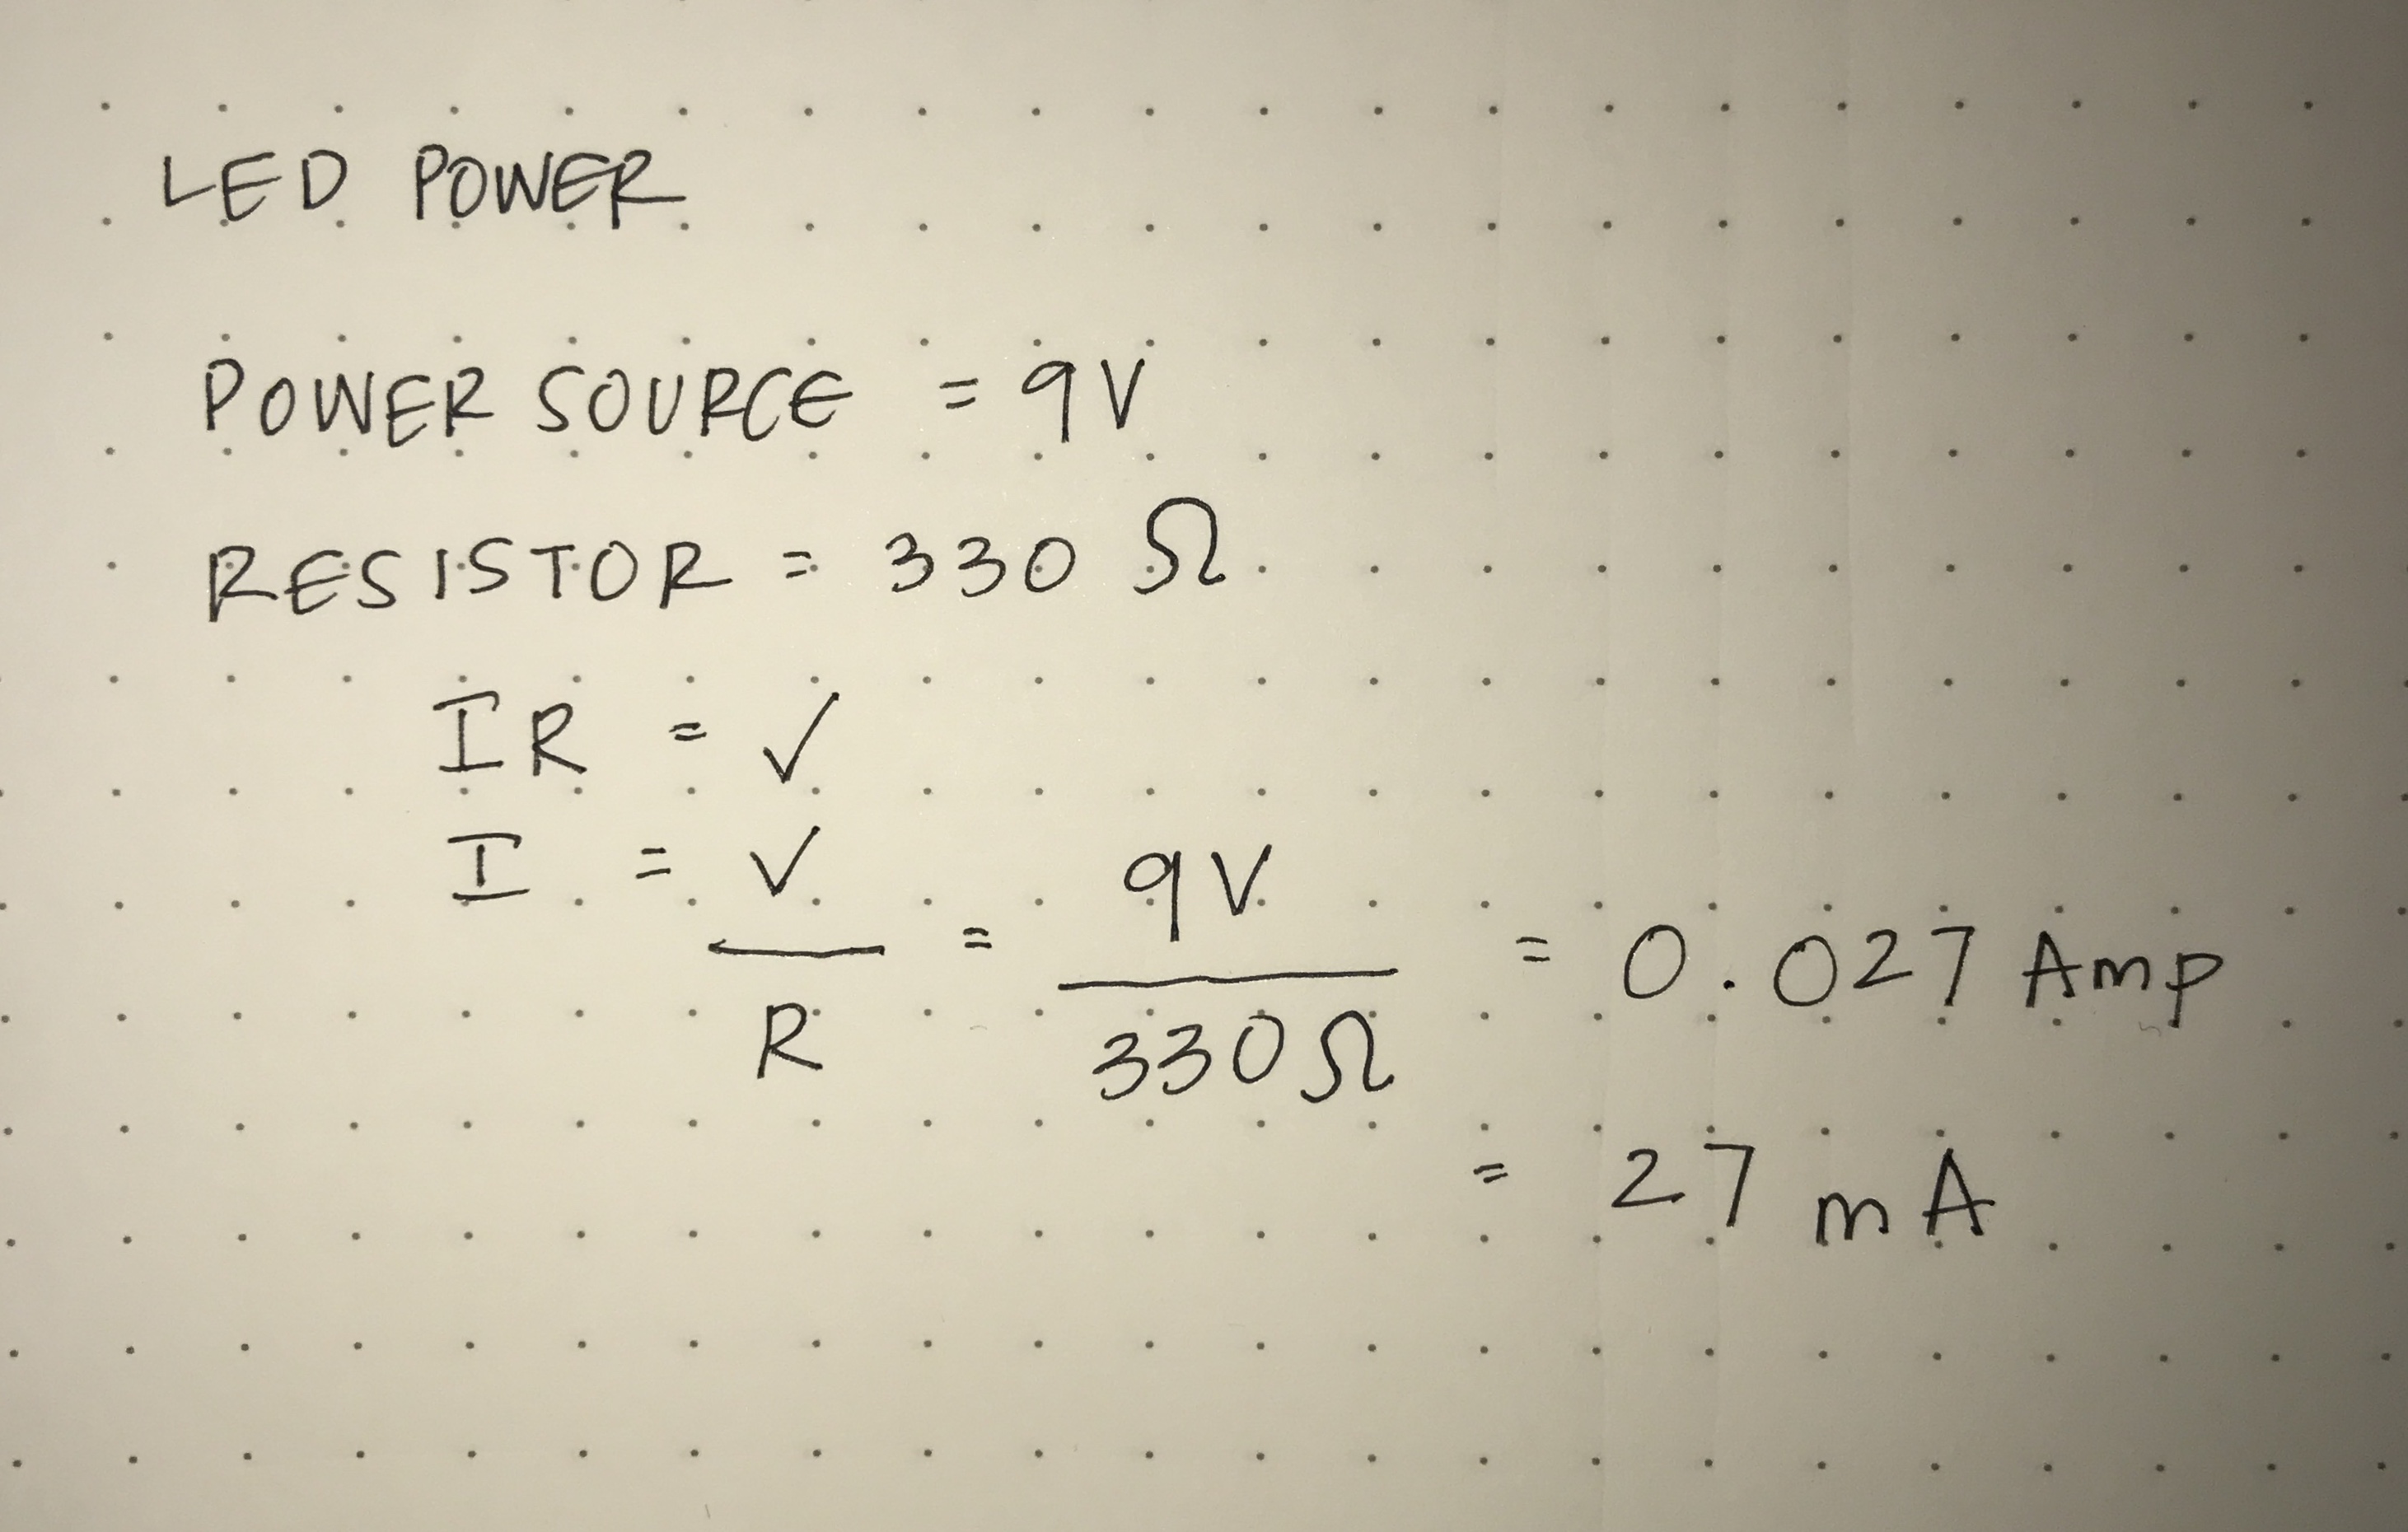 LED POWER
POWER SOURCE = 9V
RESISTOR = 330 Ω
IR = V
I = V / R = 9V / 330Ω = 0.027 Amp
= 27 mA